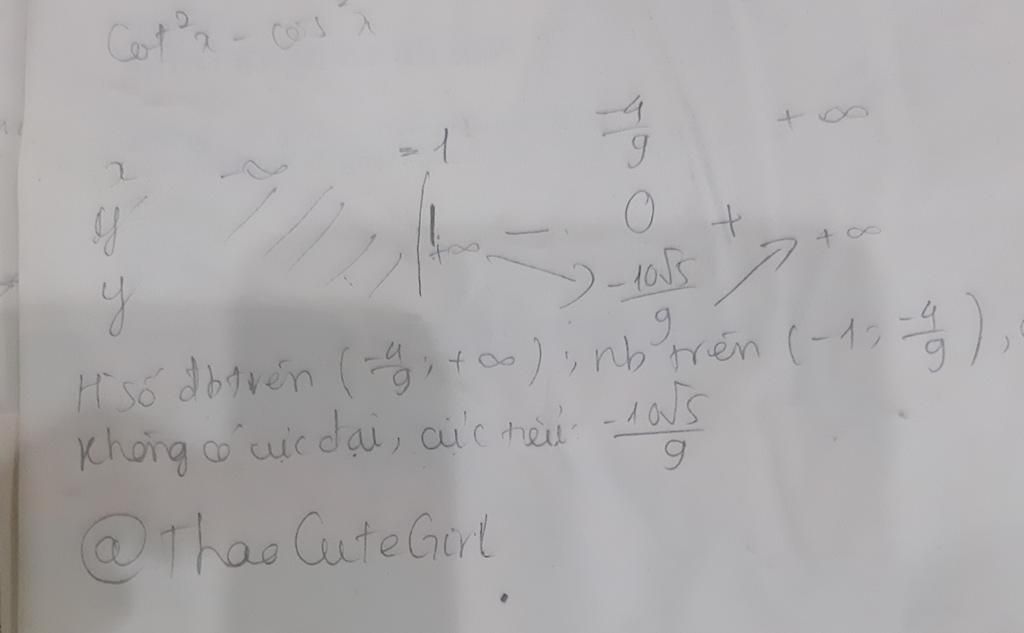 cot²x - cos²x
x -∞ -1 -4/9 +∞
y' - 0 +
y +∞ -10√5/9 +∞
H số đb trên (-4/9; +∞); nb trên (-1; -4/9),
Không có cực đại, cực tiểu: -10√5/9
@ThaoCuteGirl